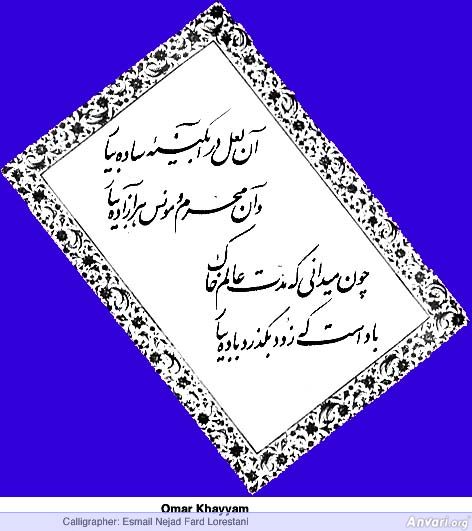 آن لعل در آبگینه ساده بیار
وآن محرم و مونس هر آزاده بیار
چون میدانی که مدت عالم خاک
باد است که زود بگذرد باده بیار
Omar Khayyam
Calligrapher: Esmail Nejad Fard Lorestani
Anvari.org